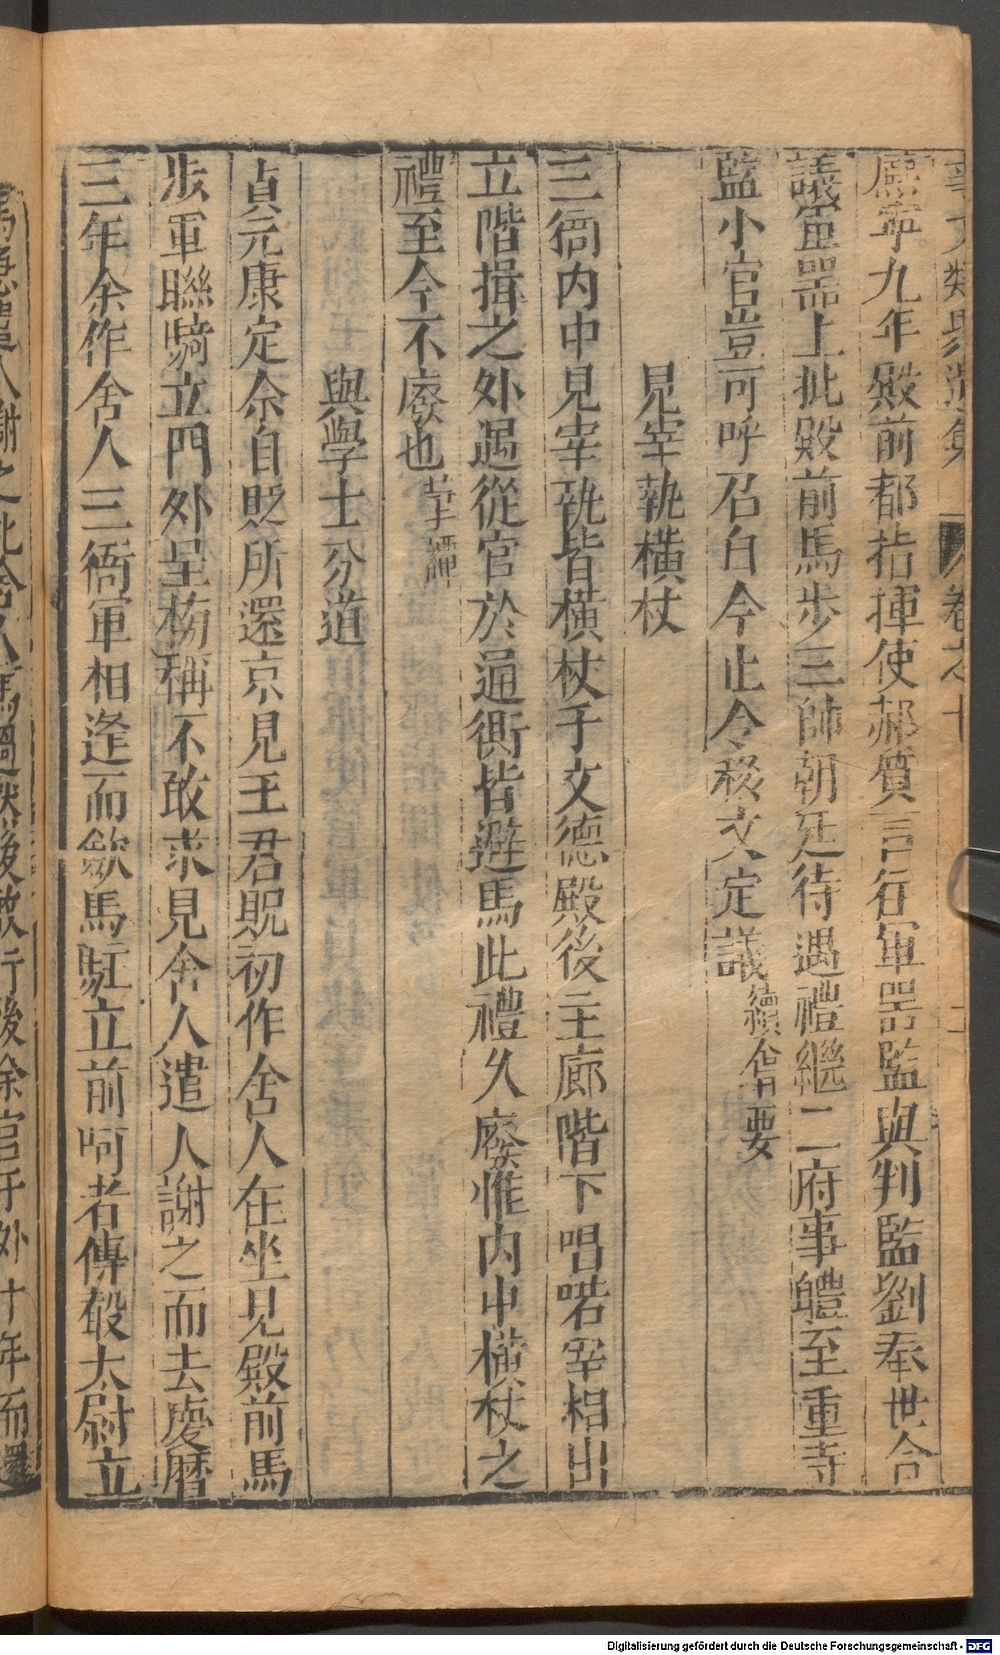 事文類聚遺集 卷之十
熙寧九年殿前都指揮使郝質言在軍器監與判監劉奉世合
議軍器上批殿前馬步三帥朝廷待遇禮繼二府事體至重寺
監小官豈可呼召自今止令移文定議續會要
見宰執橫杖
三衙內中見宰執皆橫杖于文德殿後主廊階下唱喏宰相出
立階揖之外遇從官於通衢皆避馬此禮久廢惟內中橫杖之
禮至今不廢也
與學士分道
貞元康定余自貶所還京見王君貺初作舍人在坐見殿前馬
步軍聯騎立門外呈榜稱不敢求見舍人遣人謝之而去慶曆
三年余作舍人三衙軍相逢而歛馬駐立前呵者傳聲太尉立
馬急遣人謝之比舍人馬過然後敢行後余官于外十年而還
Digitalisierung gefördert durch die Deutsche Forschungsgemeinschaft - DFG